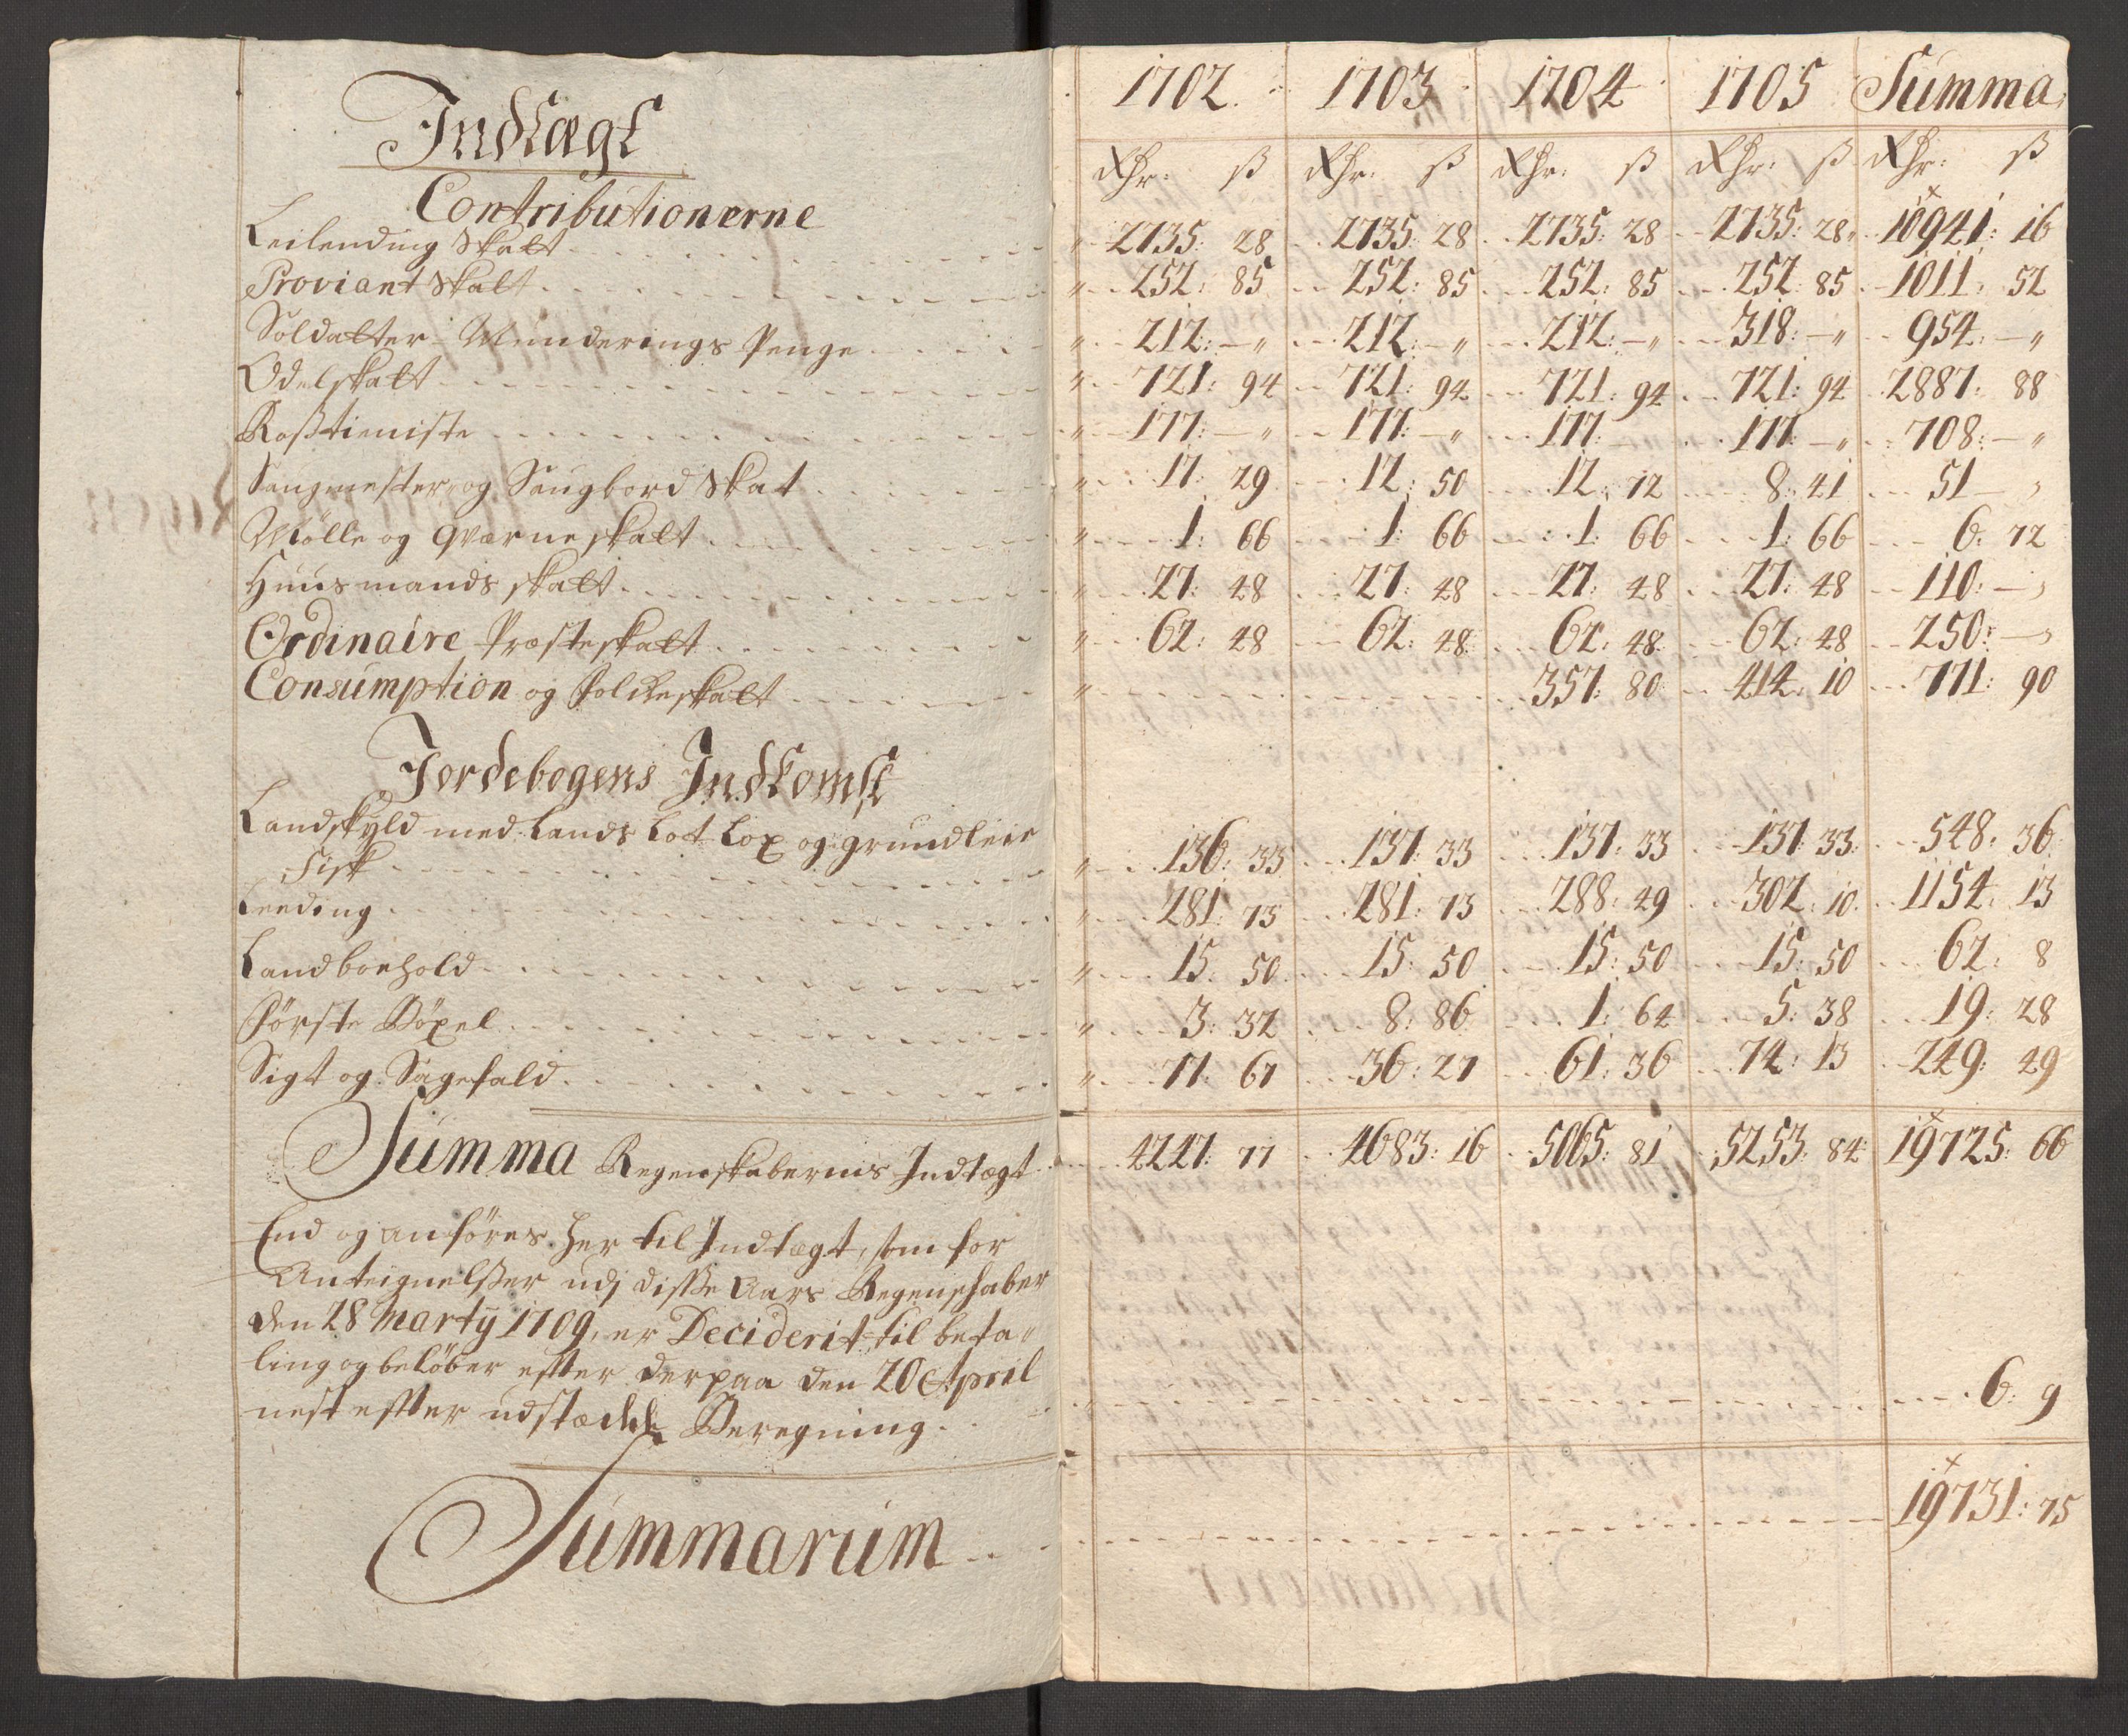 Indtægt
Contributionerne
1702. 1703 1704 1705 Summa
Rhr: ß Rhr: ß Rhr: ß Rhr: ß Rhr: ß
Leilending Skatt 2735: 28 2735: 28 2735: 28 2735: 28 10941: 16
Proviant Skatt 252: 85 252: 85 252: 85 252: 85 1011: 52
Soldatter Munderings Penge 212: — 212: — 212: — 318: — 954: —
Odelskatt 721: 94 721: 94 721: 94 721: 94 2887: 88
Roßtieniste 177: — 177: — 177: — 177: — 708: —
Saugmester og Saugbord Skat 17: 29 12: 50 12: 72 8: 41 51 —
Mölle og Qværneskatt 1: 66 1: 66 1: 66 1: 66 6: 72
Huusmands skatt 27: 48 27: 48 27: 48 27: 48 110: —
Ordinaire Præsteskatt 62: 48 62: 48 62: 48 62: 48 250: —
Consumption og Folckeskatt 357: 80 414: 10 771: 90
Jordebogens Indkomst
Landskyld med Lands Lot Lox og grundleie
Fisk 136: 33 137: 33 137: 33 137: 33 548: 36
Leeding 281: 73 281: 73 288: 49 302: 10 1154: 13
Landboehold 15: 50 15: 50 15: 50 15: 50 62: 8
Förste Böxel 3: 32 8: 86 1: 64 5: 38 19: 28
Sigt og Sagefald 77: 67 36: 27 61: 36 74: 13 249: 47
Summa Regenskabernis Indtægt 4722: 77 4683: 16 5065: 81 5253: 84 19725: 66
End og anföres her til Indtægt, som for
Anteignelßer udj disse Aars Regenskaber
den 28 Marty 1709, er Deciderit til beta-
ling og belöber efter derpaa den 20 April
nest efter udstædde Beregning 6: 9
Summarum 19731: 75